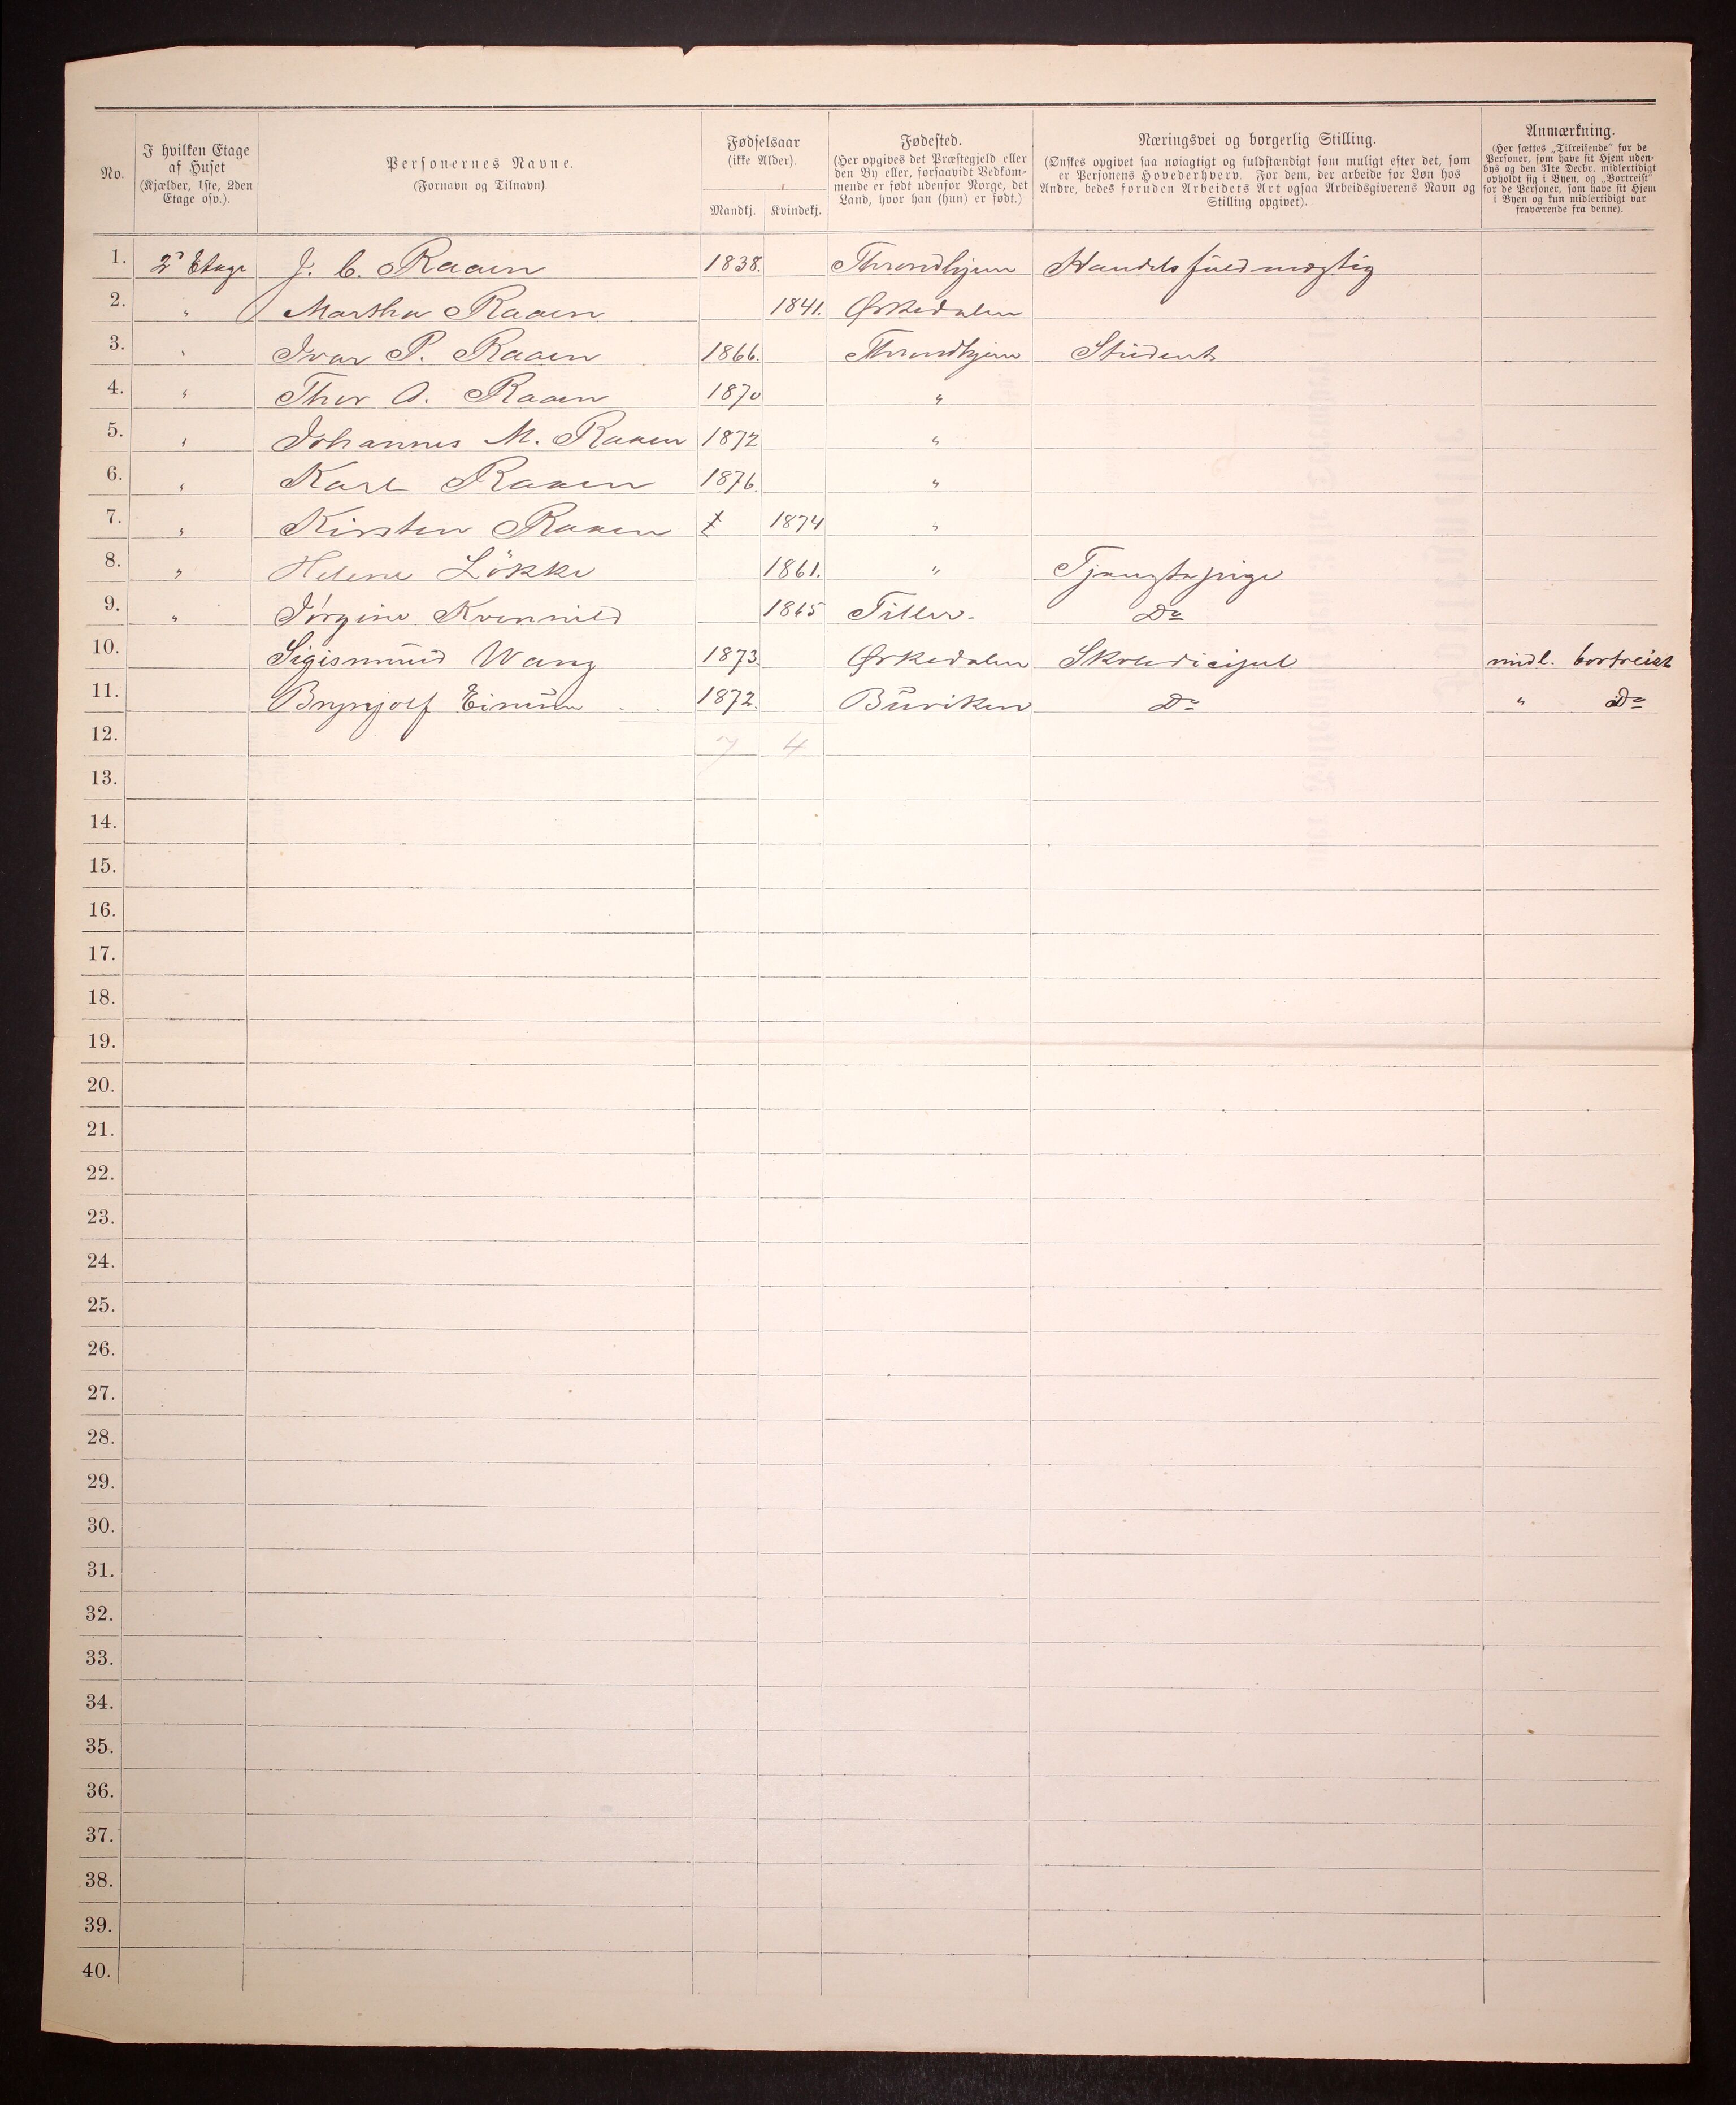 No.
I hvilken Etage af Huset (Kjælder, 1ste, 2den Etage osv.).
Personernes Navne. (Fornavn og Tilnavn).
Fødselsaar (ikke Alder).
Mandkj. Kvindekj.
Fødested. (Her opgives det Præstegjeld eller den By eller, forsaavidt Vedkommende er født udenfor Norge, det Land, hvor han (hun) er født.)
Næringsvei og borgerlig Stilling. (Ønskes opgivet saa nøiagtigt og fuldstændigt som muligt efter det, som er Personens Hovederhverv. For dem, der arbeide for Løn hos Andre, bedes foruden Arbeidets Art ogsaa Arbeidsgiverens Navn og Stilling opgivet).
Anmærkning. (Her sættes „Tilreisende“ for de Personer, som have sit Hjem udenbys og den 31te Decbr. midlertidigt opholdt sig i Byen, og „Bortreist“ for de Personer, som have sit Hjem i Byen og kun midlertidigt var fraværende fra denne).
1. 2' Etage J. C. Raaen 1838. Throndhjem Handelsfuldmægtig
2. " Martha Raaen 1841. Ørkedalen
3. " Ivar P. Raaen 1866. Throndhjem Student
4. " Thor A. Raaen 1870 "
5. " Johannes M. Raaen 1872 "
6. " Karl Raaen 1876. "
7. " Kirsten Raaen 1874 "
8. " Helene Lökke 1861. " Tjenestepige
9. " Jørgine Kvenild 1865 Tiller. Do
10. Sigismund Wang 1873 Ørkedalen Skoledicipel midl. bortreist
11. Brynjolf Einum 1872. Büviken Do " Do
12. 7 4
13.
14.
15.
16.
17.
18.
19.
20.
21.
22.
23.
24.
25.
26.
27.
28.
29.
30.
31.
32.
33.
34.
35.
36.
37.
38.
39.
40.